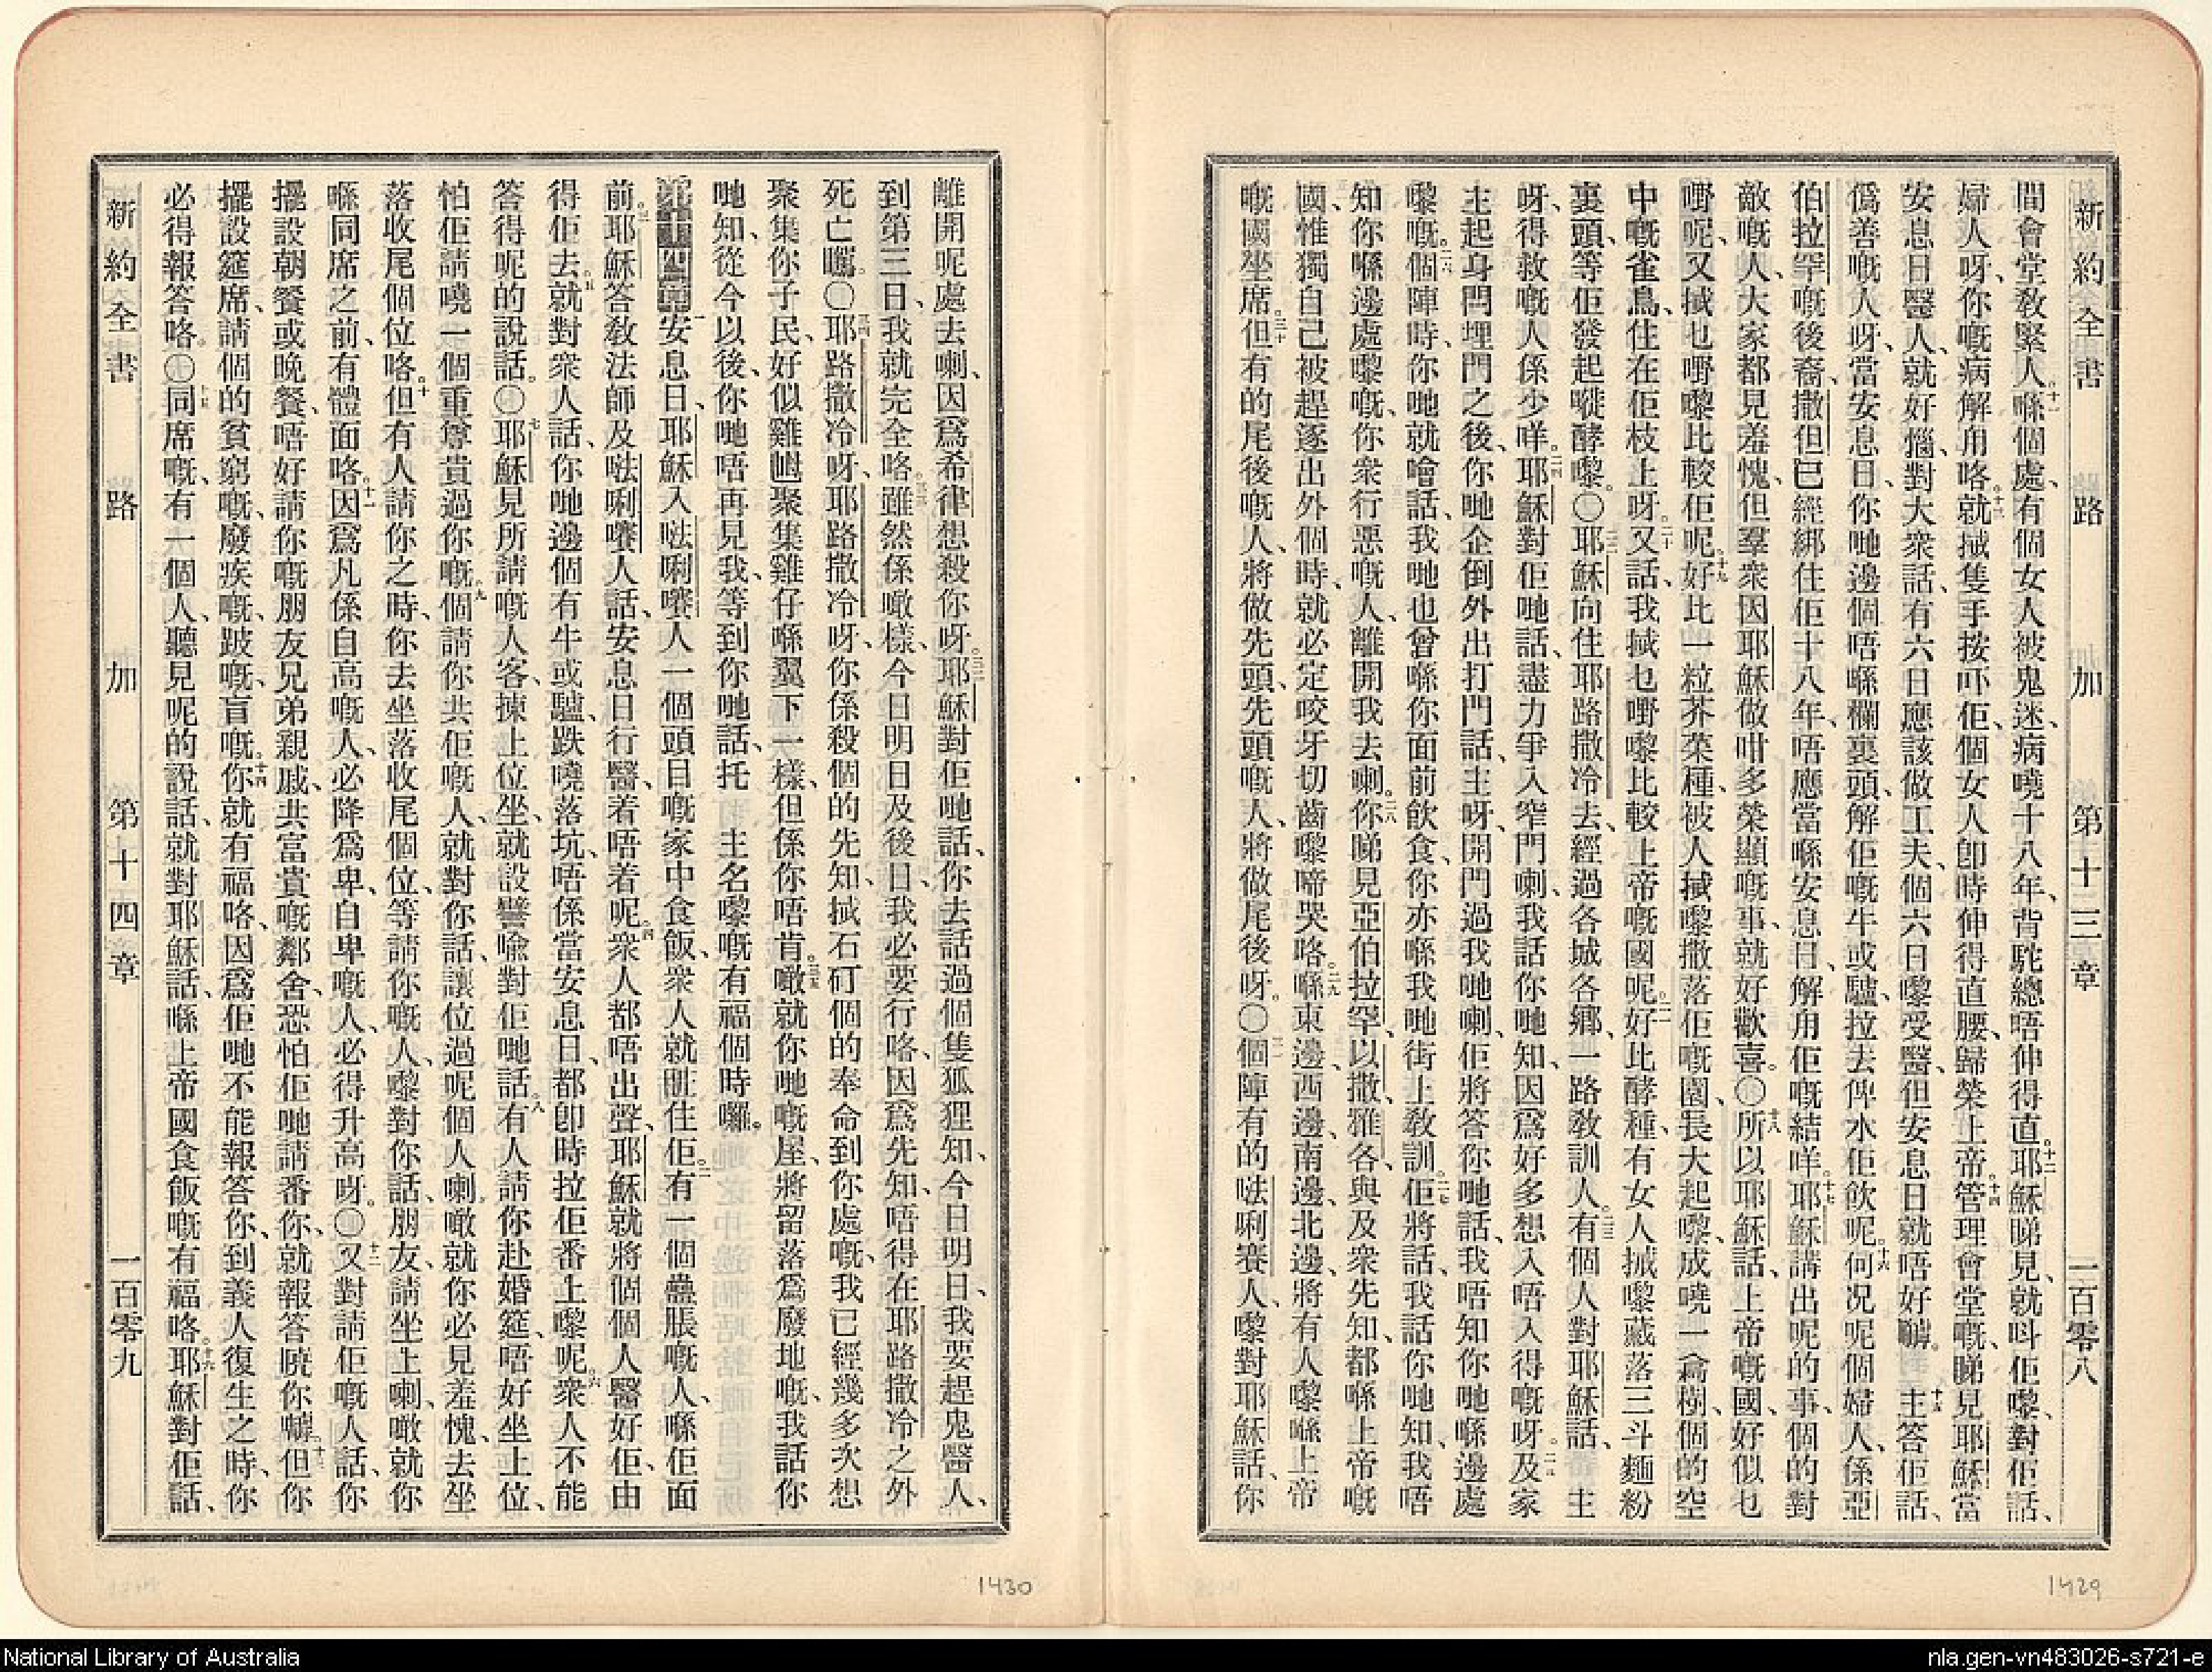 新約全書 路加 第十三章 一百零八
間會堂教緊人、十一喺個處、有個女人被鬼迷、病嘵十八年、背駝總唔伸得直。十二耶穌睇見、就呌佢嚟、對佢話、
婦人呀、你嘅病解用咯。十三就搣隻手按吓佢、個女人卽時伸得直腰、歸榮上帝。十四管理會堂嘅、睇見耶穌當
安息日醫人、就好惱、對大衆話、有六日應該做工夫、個六日嚟受醫、但安息日就唔好嚹。十五主答佢話、
僞善嘅人呀、當安息日、你哋邊個唔喺欄裏頭、解佢嘅牛或驢、拉去俾水佢飮呢。十六何況呢個婦人、係亞
伯拉罕嘅後裔、撒但已經綁住佢十八年、唔應當喺安息日、解用佢嘅結咩。十七耶穌講出呢的事、個的對
敵嘅人、大家都見羞愧、但羣衆因耶穌做咁多榮顯嘅事、就好歡喜。〇十八所以耶穌話、上帝嘅國、好似乜
嘢呢、又搣乜嘢嚟比較佢呢。十九好比一粒芥菜種、被人搣嚟撒落佢嘅園、長大起嚟、成嘵一樖樹、個的空
中嘅雀鳥、住在佢枝上呀。二十又話、我搣乜嘢嚟比較上帝嘅國呢。二一好比酵種、有女人搣嚟藏落三斗麵粉
裏頭、等佢發起嘥酵嚟。〇二二耶穌向住耶路撒冷去、經過各城各鄉、一路教訓人。二三有個人對耶穌話、主
呀、得救嘅人係少咩。二四耶穌對佢哋話、盡力爭入窄門喇、我話你哋知、因爲好多想入唔入得嘅呀。二五及家
主起身閂埋門之後、你哋企倒外出打門話、主呀、開門過我哋喇、佢將答你哋話、我唔知你哋喺邊處
嚟嘅。二六個陣時、你哋就噲話、我哋也曾喺你面前飮食、你亦喺我哋街上教訓。二七佢將話、我話你哋知、我唔
知你喺邊處嚟嘅、你衆行惡嘅人、離開我去喇。二八你睇見亞伯拉罕、以撒、雅各、與及衆先知、都喺上帝嘅
國、惟獨自己被趕逐出外個時、就必定咬牙切齒嚟啼哭咯。二九喺東邊、西邊、南邊、北邊、將有人嚟喺上帝
嘅國坐席。三十但有的尾後嘅人、將做先頭、先頭嘅人、將做尾後呀。〇三一個陣有的㗲唎賽人、嚟對耶穌話、你
1429
離開呢處去喇、因爲希律想殺你呀。三二耶穌對佢哋話、你去話過個隻狐狸知、今日明日、我要趕鬼醫人、
到第三日、我就完全咯。三三雖然係噉樣、今日明日及後日、我必要行咯、因爲先知、唔得在耶路撒冷之外
死亡嚹。〇三四耶路撒冷呀、耶路撒冷呀、你係殺個的先知、搣石矴個的奉命到你處嘅、我已經幾多次想
聚集你子民、好似雞𡛕聚集雞仔喺翼下一樣、但係你唔肯。三五噉就你哋嘅屋、將留落爲廢地嘅、我話你
哋知、從今以後、你哋唔再見我、等到你哋話、托主名嚟嘅有福個時囉。
第十四章 一安息日、耶穌入㗲唎嚽人一個頭目嘅家中食飯、衆人就䀹住佢。二有一個蠱脹嘅人、喺佢面
前。三耶穌答敎法師及㗲唎嚽人話、安息日行醫、着唔着呢。四衆人都唔出聲、耶穌就將個個人醫好佢、由
得佢去。五就對衆人話、你哋邊個有牛或驢、跌嘵落坑、唔係當安息日、都卽時拉佢番上嚟呢。六衆人不能
答得呢的說話。〇七耶穌見所請嘅人客、揀上位坐、就設譬喩對佢哋話、八有人請你赴婚筵、唔好坐上位、
怕佢請嘵一個重尊貴過你嘅。九個請你共佢嘅人、就對你話、讓位過呢個人喇。噉就你必見羞愧、去坐
落收尾個位咯。十但有人請你之時、你去坐落收尾個位、等請你嘅人、嚟對你話、朋友、請坐上喇、噉就你
喺同席之前、有體面咯。十一因爲凡係自高嘅人、必降爲卑、自卑嘅人、必得升高呀。〇十二又對請佢嘅人話、你
擺設朝餐或晚餐、唔好請你嘅朋友兄弟親戚、共富貴嘅鄰舍、恐怕佢哋請番你、就報答曉你嚹。十三但你
擺設筵席、請個的貧窮嘅、廢疾嘅、跛嘅、盲嘅。十四你就有福咯、因爲佢哋不能報答你、到義人復生之時、你
必得報答咯。〇十五同席嘅、有一個人、聽見呢的說話、就對耶穌話、喺上帝國食飯嘅有福咯。十六耶穌對佢話、
新約全書 路加 第十四章 一百零九
1430
National Library of Australia
nla.gen-vn483026-s721-e